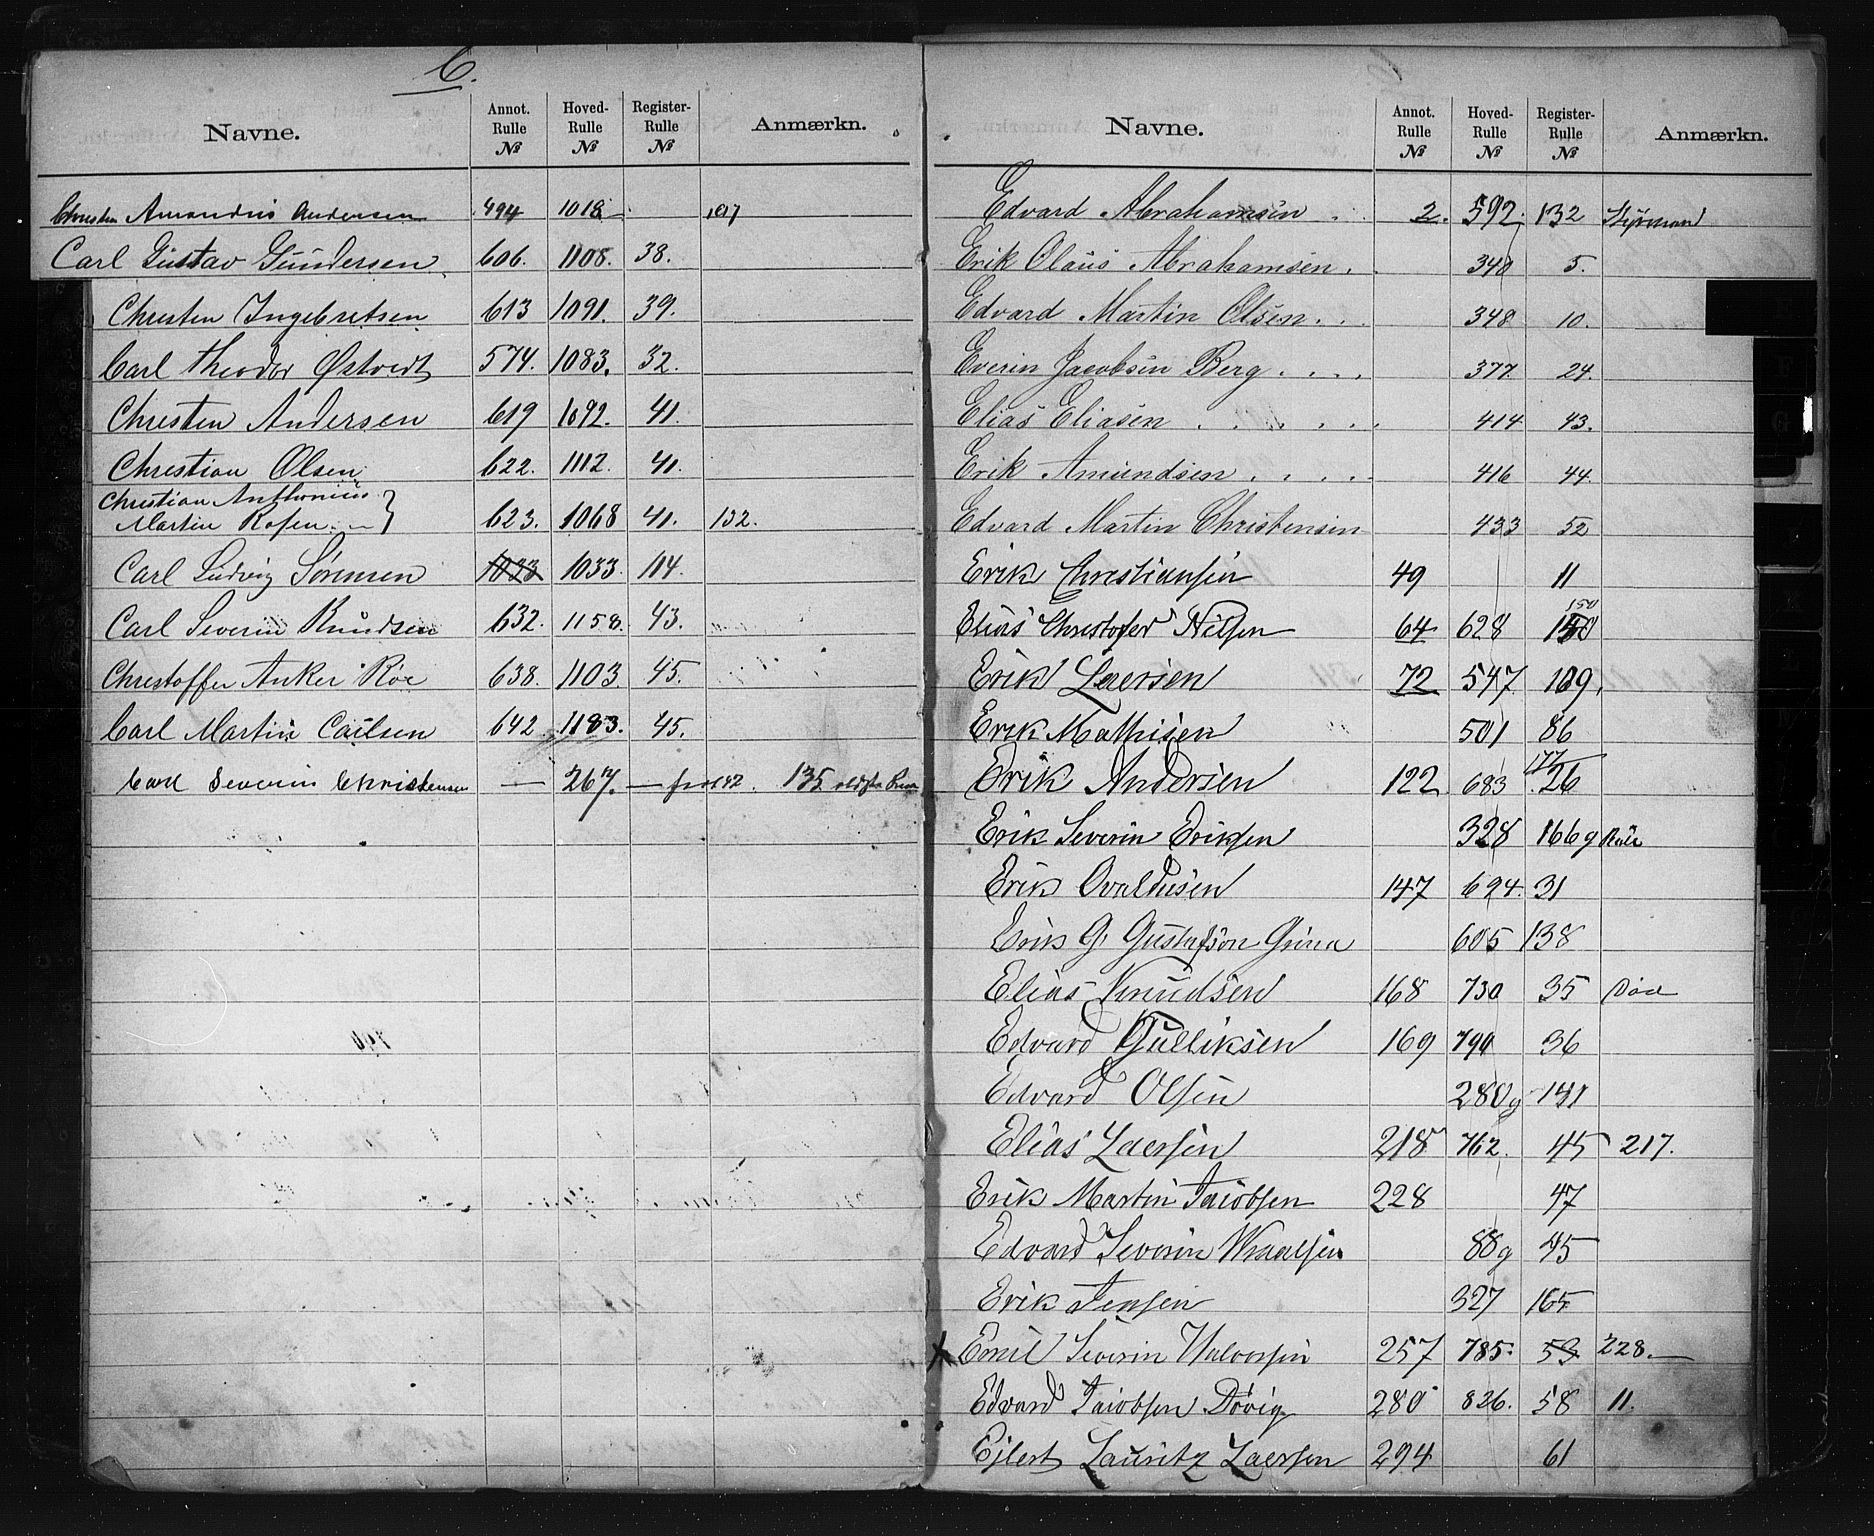 C.
Navne. Annot. Rulle № Hoved-Rulle № Register-Rulle № Anmærkn.
Christen Amandus Andersen 494 1018 107
Carl Gustav Gundersen 606. 1108. 38.
Christen Ingebretsen 613 1091. 39.
Carl Theodor Østvedt 574. 1083. 32.
Christen Andersen 619 1092. 41.
Christian Olsen 622. 1112. 41.
Christian Anthonius
Martin Rosen 623. 1068 41. 132.
Carl Ludvig Sørensen 1033 1033. 114.
Carl Severin Knudsen 632. 1158. 43.
Christoffer Anker Röe 638. 1103. 45.
Carl Martin Carlsen 642. 1183. 45.
Carl Severin Christensen — 267. — 135
Navne. Annot. Rulle № Hoved-Rulle № Register-Rulle № Anmærkn.
Edvard Abrahamsen 2. 592. 132 Styrmand
Erik Olaus Abrahamsen 340 5.
Edvard Martin Olsen 348 10.
Everin Jacobsen Berg 377 24.
Elias Eliasen 414 43.
Erik Amundsen 416 44.
Edvard Martin Christensen 433 52
Erik Christiansen 49 11
Elias Christofer Nilsen 64 628 150
Erik Larsen 72 547 109.
Erik Mathisen 501 86
Erik Andersen 122 683 177 26
Erik Severin Eriksen 328 166 g
Erik Ovaldsen 147 694. 31
Erik G. Gustafson 605 138
Elias Knudsen 168 730 35 Död
Edvard Gulliksen 169 790 36
Edvard Olsen 280 g 141
Elias Larsen 218 762. 45 217.
Erik Martin Jacobsen 228 47
Edvard Severin 88 g 45
Erik Jensen 327 165
x Emil Severin Halvorsen 257 785. 53 228.
Edvard Jacobsen Dövig 280 826. 58 11.
Ejlert Lauritz Larsen 294 61